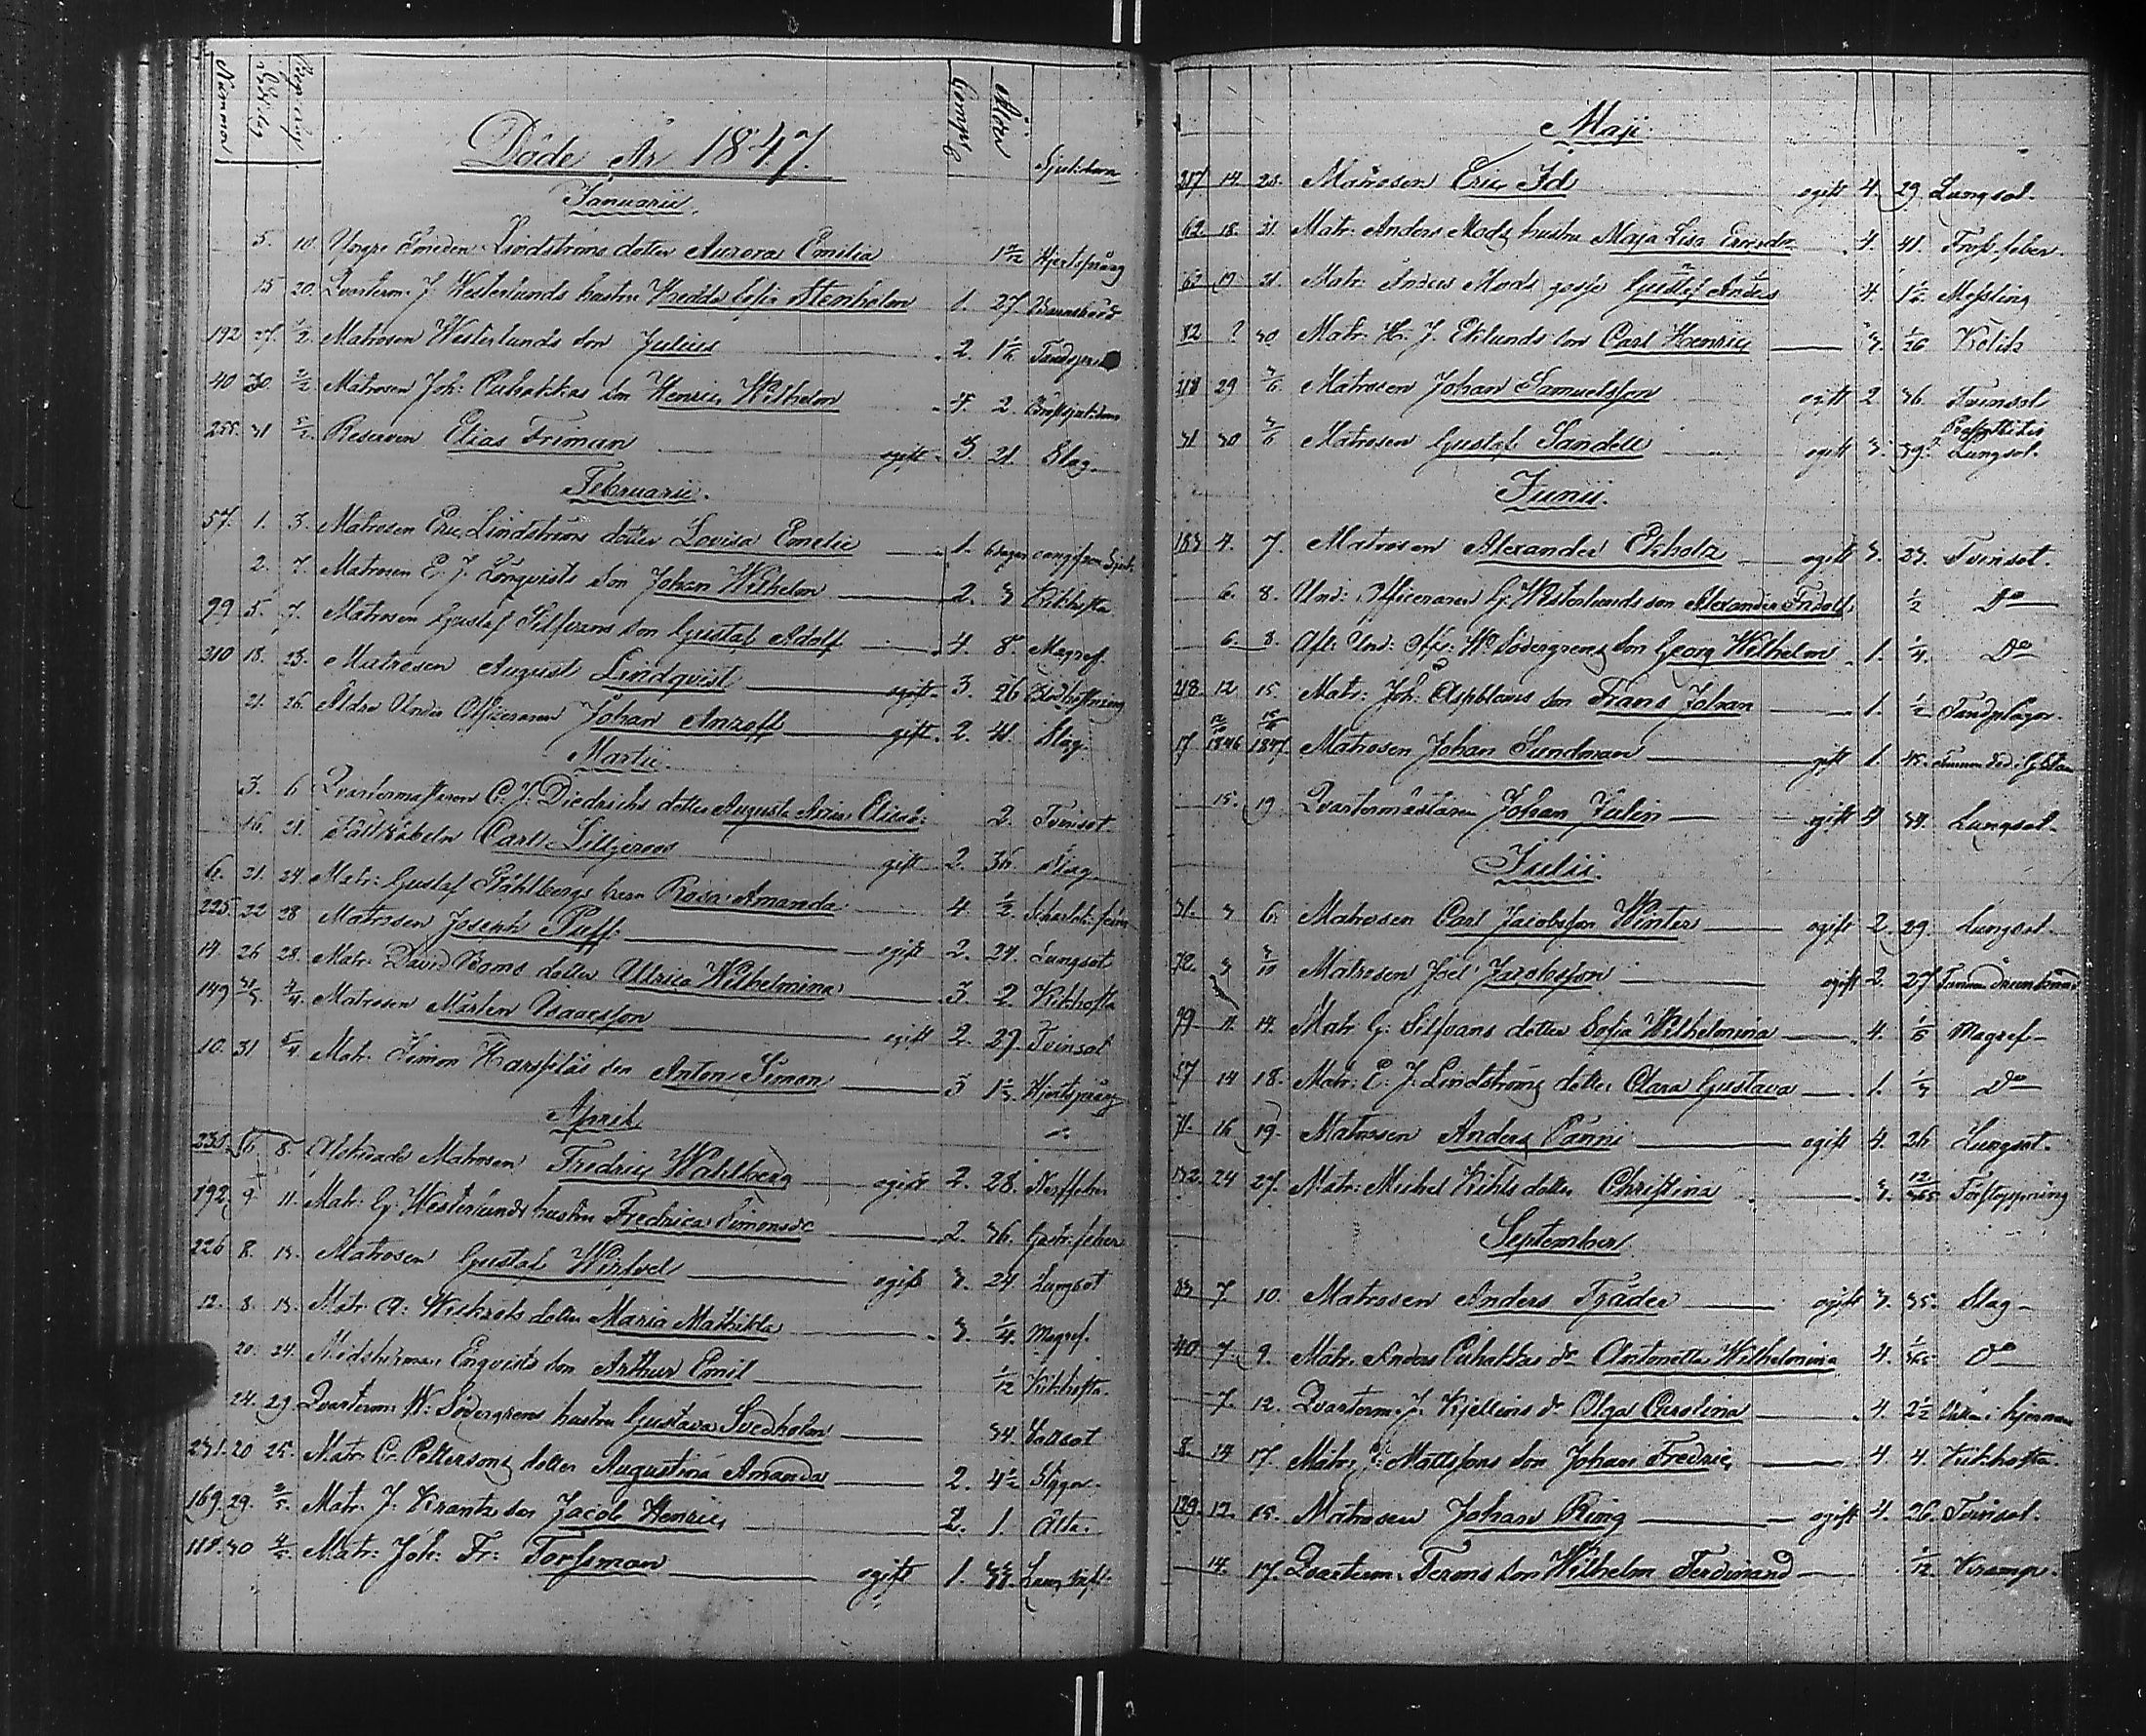 Nummer Dödsdag Begrafn. Comp. Ålder Sjukdom
Döde År 1847.
Januarii.
5. 10. Yngre Smeden Lindströms dotter Aurora Emilia Hjertsprång
15 20. Qvarterm. J Westerlunds hustru Hedda Sofia Stenholm 1. 27. Barnsbörd
192 27. 1/2. Matrosen Westerlunds son Julius 2. 1 1/2
40 30. 2/2 Matrosen Joh: Puhakkas son Henric Wilhelm 4. 2. Bröstsjukdom
255. 31 5/2. Reserven Elias Friman ogift 3 21. Slag
Februarii.
57. 1. 3. Matrosen Eric Lindströms dotter Lovisa Emelie 1. 6 dagar
2. 7. Matrosen E. J. Lönqvists son Johan Wilhelm 2. 3 Kikhosta
99 5. 7. Matrosen Gustaf Silfvans son Gustaf Adolf 4. 8. Magref.
310 18. 23. Matrosen August Lindqvist ogift 3. 26 Blodhostning
21. 26. Äldre Under Officeraren Johan Anroff gift. 2. 41. Slag.
Martii.
3. 6 Qvartermästaren C. J. Diedrichs dotter Augusta Elisab: 2. Tvinsot.
16. 21. Carl Liljeroos gift 2. 36. Slag
6. 21. 24. Matr: Gustaf Ståhlbergs barn Rosa Amanda 4 1/2. Scharlak: feber
225. 22 28 Matrosen Joseph Puff. ogift 2. 24. Lungsot
14. 26 28. Matr. David Boms dotter Ulrica Wilhelmina 3. 2. Kikhosta
149 31/3. 4/4. Matrosen Mårten Isaacsson ogift 2. 29. Tvinsot
10. 31. 5/4. Matr. Simon son Anton Simon 3 1 1/3. Hjertsprång
April
235. 6. 8. Matrosen Fredric Wahlberg ogift 2. 28. Nerffeber
192. 9. 11. Matr. G. Westerlunds hustru Fredrica Simonsdr. 2. 36. Gastr. feber
226 8. 13. Matrosen Gustaf ogift 3. 24. Lungsot
12. 8. 13. Matr. dotter Maria Mathilda 3 1/4. Magref.
20. 24. Enqvists son Arthur Emil 1/12 Kikhosta.
24. 29. Qvarterm. W: Södergrens hustru Gustava Svedholm 34.
231. 20 25. Matr. C. Pettersons dotter Augustina Amanda 2. 4 1/2
169. 29. 3/5. Matr. J. Krantz son Jacob Henric 2. 1. Älta.
188. 30 4/5. Matr: Joh: Fr: Forssman ogift 1. 33.
Maji.
217 14. 23. Matrosen Eric Id ogift 4. 29. Lungsot.
62. 18. 21. Matr. Anders Mods hustru Maja Lisa Ericsdr. 4. 41. Fross. feber.
62 19 21. Matr. Anders Mods gosse Gustaf Anders 4. 1 1/6. Messling
82 ? 30 Matr. H. J. Eklunds son Carl Henric 3. 1/26 Kolik
218 29 3/6 Matrosen Johan Samuelsson ogift 2 36. Tvinsot
31 30 3/6 Matrosen Gustaf Sandell ogift 3. 39. Lungsot.
Junii.
183 4. 7. Matrosen Alexander Ekholtz ogift 3. 23. Tvinsot.
6. 8. Und: Officeraren G. Westerlunds son Alexander Fridolf 1/2 Do
6. 8. Afl: Und: Offs: W. Södergrens son Georg Wilhelm 1. 1/4. Do
218. 12 15. Matr: Joh: Asphlams son Frans Johan 1. 1/2 Tandplågor.
17 1846 1847 Matrosen Johan Sundman gift 1. 45.
15. 19 Qvartermästaren Johan Julin ogift 34. Lungsot.
Julii.
31. 3 6. Matrosen Carl Jacobsson Winter ogift 2. 29. Lungsot.
72. 3 3/10 Matrosen Joel Jacobsson ogift 2. 27
99 11. 14. Matr. G: Silfvans dotter Sofia Wilhelmina 4. 1/5 Magref
57 14 18. Matr: E. J. Lindströms dotter Clara Gustava 1. 1/3 Do
71. 16 19. Matrosen Anders Panni ogift 4. 26. Lungsot.
132. 24 27. Matr: Michel Kihls dotter Christina 3. 12/365 Förstoppning
September
33 7 10. Matrosen Anders Träder ogift 3. 35. Slag
40 7. 9. Matr. Anders Puhakkas dr Antonetta Wilhelmina 4. 1/365 Do
7. 12. Qvarterm. J. Kjellins dr Olga Carolina 4. 2 1/2 i hjernan
8. 14 17. Matr. Mattssons son Johan Fredric 4 4. Kikhosta.
129. 12. 15. Matrosen Johan Ring ogift 4. 26. Tvinsot.
14. 17. Qvarterm. Ferons son Wilhelm Ferdinand 1/12. Kramp.